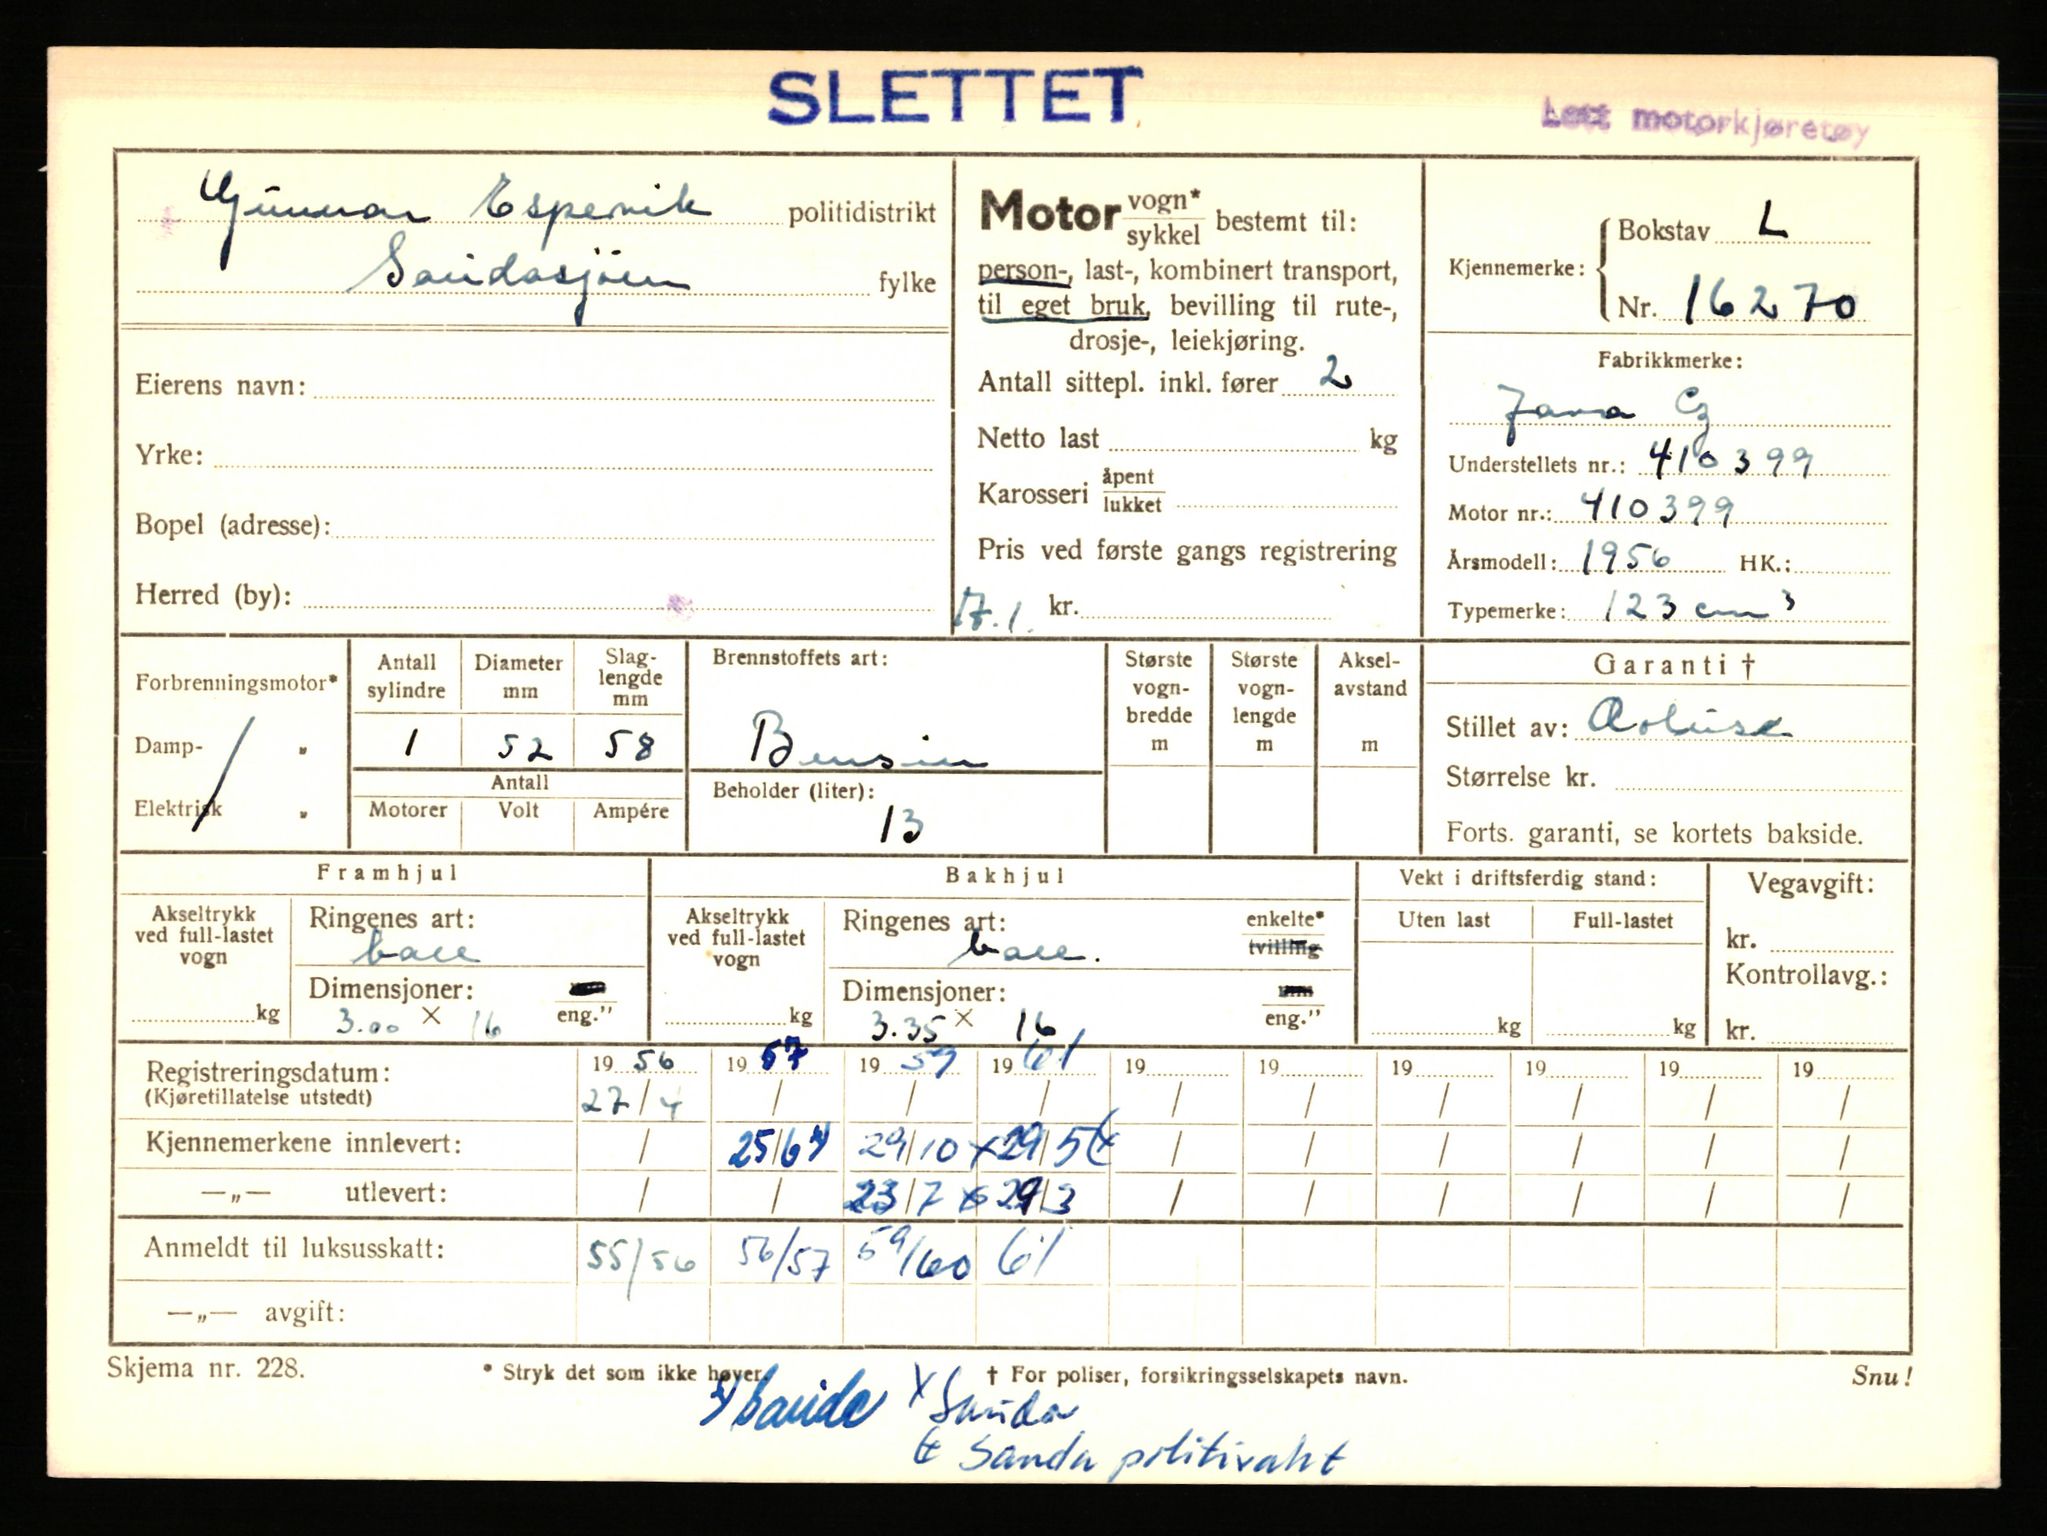 SLETTET
Lett motorkjøretøy
Gunnar Espevik politidistrikt
Saudasjøen fylke
Eierens navn:
Yrke:
Bopel (adresse):
Herred (by):
Motor vogn* sykkel bestemt til:
person-, last-, kombinert transport,
til eget bruk, bevilling til rute-,
drosje-, leiekjøring.
Antall sittepl. inkl. fører 2
Netto last kg
Karosseri åpent lukket
Pris ved første gangs registrering
17.1. kr.
Kjennemerke: Bokstav L
Nr. 16270
Fabrikkmerke:
Jawa Cz
Understellets nr.: 410399
Motor nr.: 410399
Årsmodell: 1956 HK.:
Typemerke: 123 cm³
Forbrenningsmotor*
Damp- „
Elektrisk „
Antall sylindre
1
Diameter mm
52
Slag-lengde mm
58
Antall
Motorer Volt Ampére
Brennstoffets art:
Bensin
Beholder (liter):
13
Største vogn-bredde m
Største vogn-lengde m
Aksel-avstand m
Garanti †
Stillet av:
Størrelse kr.
Forts. garanti, se kortets bakside.
Framhjul
Akseltrykk ved full-lastet vogn
kg
Ringenes art:
Dimensjoner: eng."
3.00 × 16
Bakhjul
Akseltrykk ved full-lastet vogn
kg
Ringenes art: enkelte* tvilling
Dimensjoner: mm eng."
3.35 × 16
Vekt i driftsferdig stand:
Uten last Full-lastet
kg kg
Vegavgift:
kr.
Kontrollavg.:
kr.
Registreringsdatum: 19 56 19 57 19 59 19 61 19 19 19 19 19 19
(Kjøretillatelse utstedt) 27/4 / / / / / / / / /
Kjennemerkene innlevert: / 25/6 29/10 x 29/5 t / / / / / /
—„— utlevert: / / 23/7 x 29/3 / / / / / /
Anmeldt til luksusskatt: 55/56 56/57 59/60 61
—„— avgift:
Skjema nr. 228. * Stryk det som ikke høver. † For poliser, forsikringsselskapets navn. Snu!
Sauda x Sauda
t Sauda politivakt